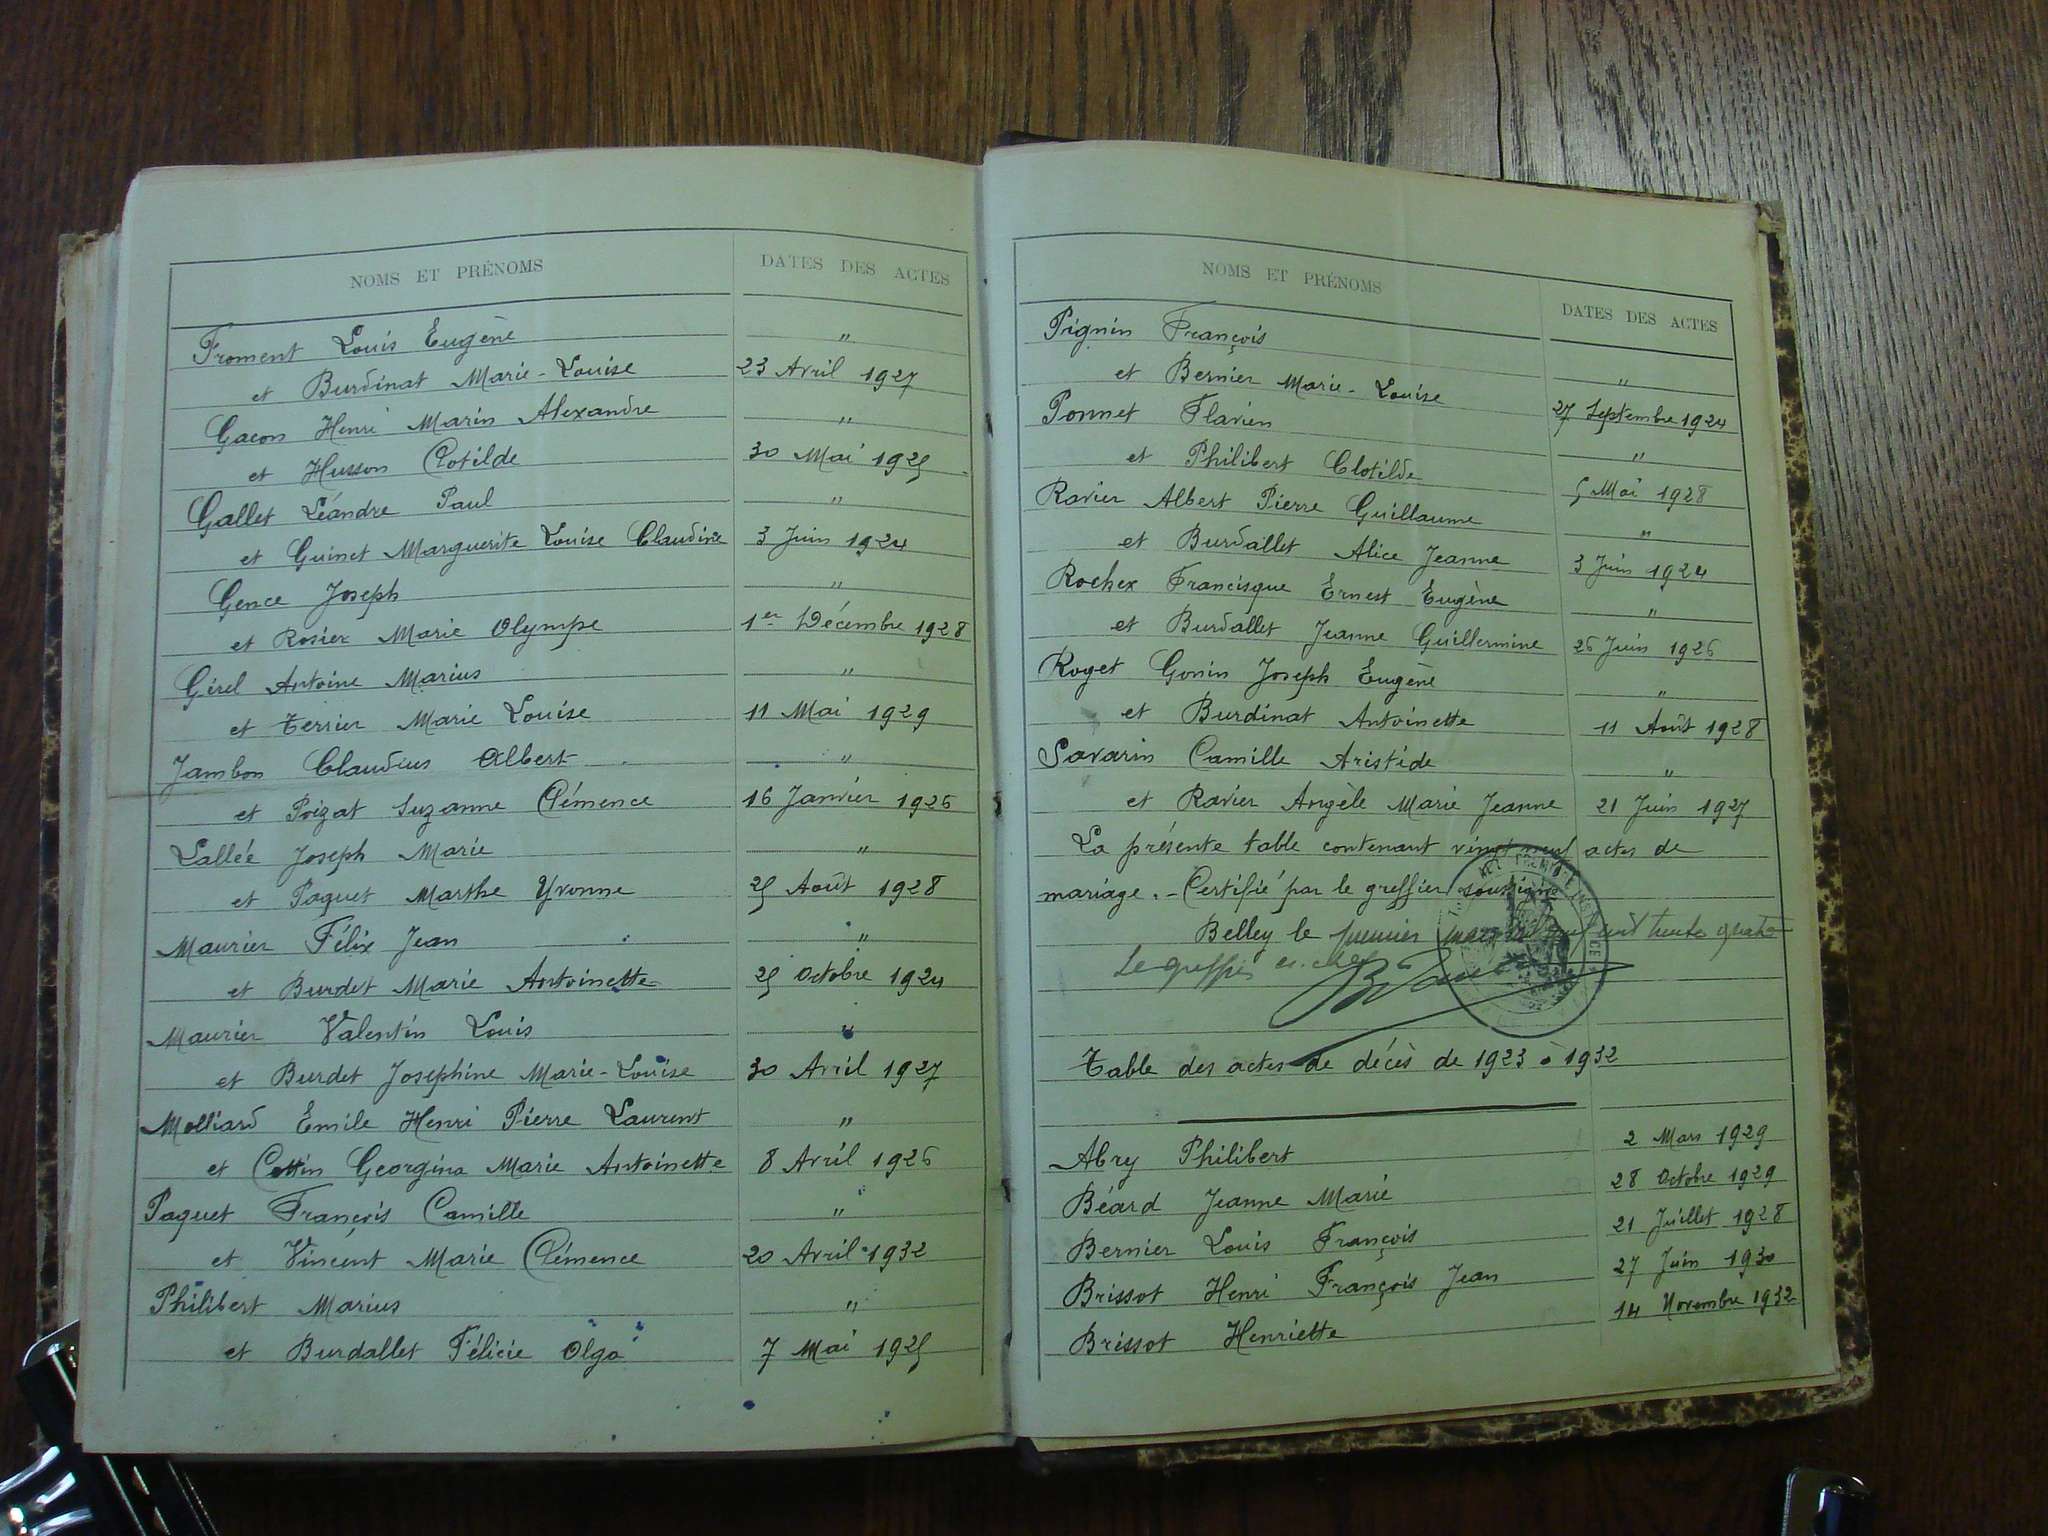 NOMS ET PRÉNOMS DATES DES ACTES
Froment Louis Eugène "
et Burdinat Marie-Louise 23 Avril 1927
Gacon Henri Marin Alexandre "
et Husson Clotilde 30 Mai 1925
Gallet Léandre Paul "
et Guinet Marguerite Louise Claudine 3 Juin 1924
Gence Joseph "
et Rosier Marie Olympe 1er Décembre 1928
Girel Antoine Marius "
et Terrier Marie Louise 11 Mai 1929
Jambon Claudius Albert "
et Poizat Suzanne Clémence 16 Janvier 1926
Lallée Joseph Marie "
et Paquet Marthe Yvonne 25 Août 1928
Maurier Félix Jean "
et Burdet Marie Antoinette 25 Octobre 1924
Maurier Valentin Louis "
et Burdet Joséphine Marie-Louise 30 Avril 1927
Molliard Emile Henri Pierre Laurent "
et Cottin Georgina Marie Antoinette 8 Avril 1926
Paquet François Camille "
et Vincent Marie Clémence 20 Avril 1932
Philibert Marius "
et Burdallet Félicie Olga 7 Mai 1925
NOMS ET PRÉNOMS DATES DES ACTES
Pignin François "
et Bernier Marie-Louise 27 Septembre 1924
Ponnet Flavien "
et Philibert Clotilde 5 Mai 1928
Ravier Albert Pierre Guillaume "
et Burdallet Alice Jeanne 3 Juin 1924
Rochex Francisque Ernest Eugène "
et Burdallet Jeanne Guillermine 26 Juin 1926
Roget Gonin Joseph Eugène "
et Burdinat Antoinette 11 Août 1928
Savarin Camille Aristide "
et Ravier Angèle Marie Jeanne 21 Juin 1927
La présente table contenant vingt neuf actes de
mariage. - Certifié par le greffier soussigné
Belley le premier mars mil neuf cent trente quatre
Le greffier en chef
Table des actes de décès de 1923 à 1932
Abry Philibert 2 Mars 1929
Béard Jeanne Marie 28 Octobre 1929
Bernier Louis François 21 Juillet 1928
Brissot Henri François Jean 27 Juin 1930
Brissot Henriette 14 Novembre 1932